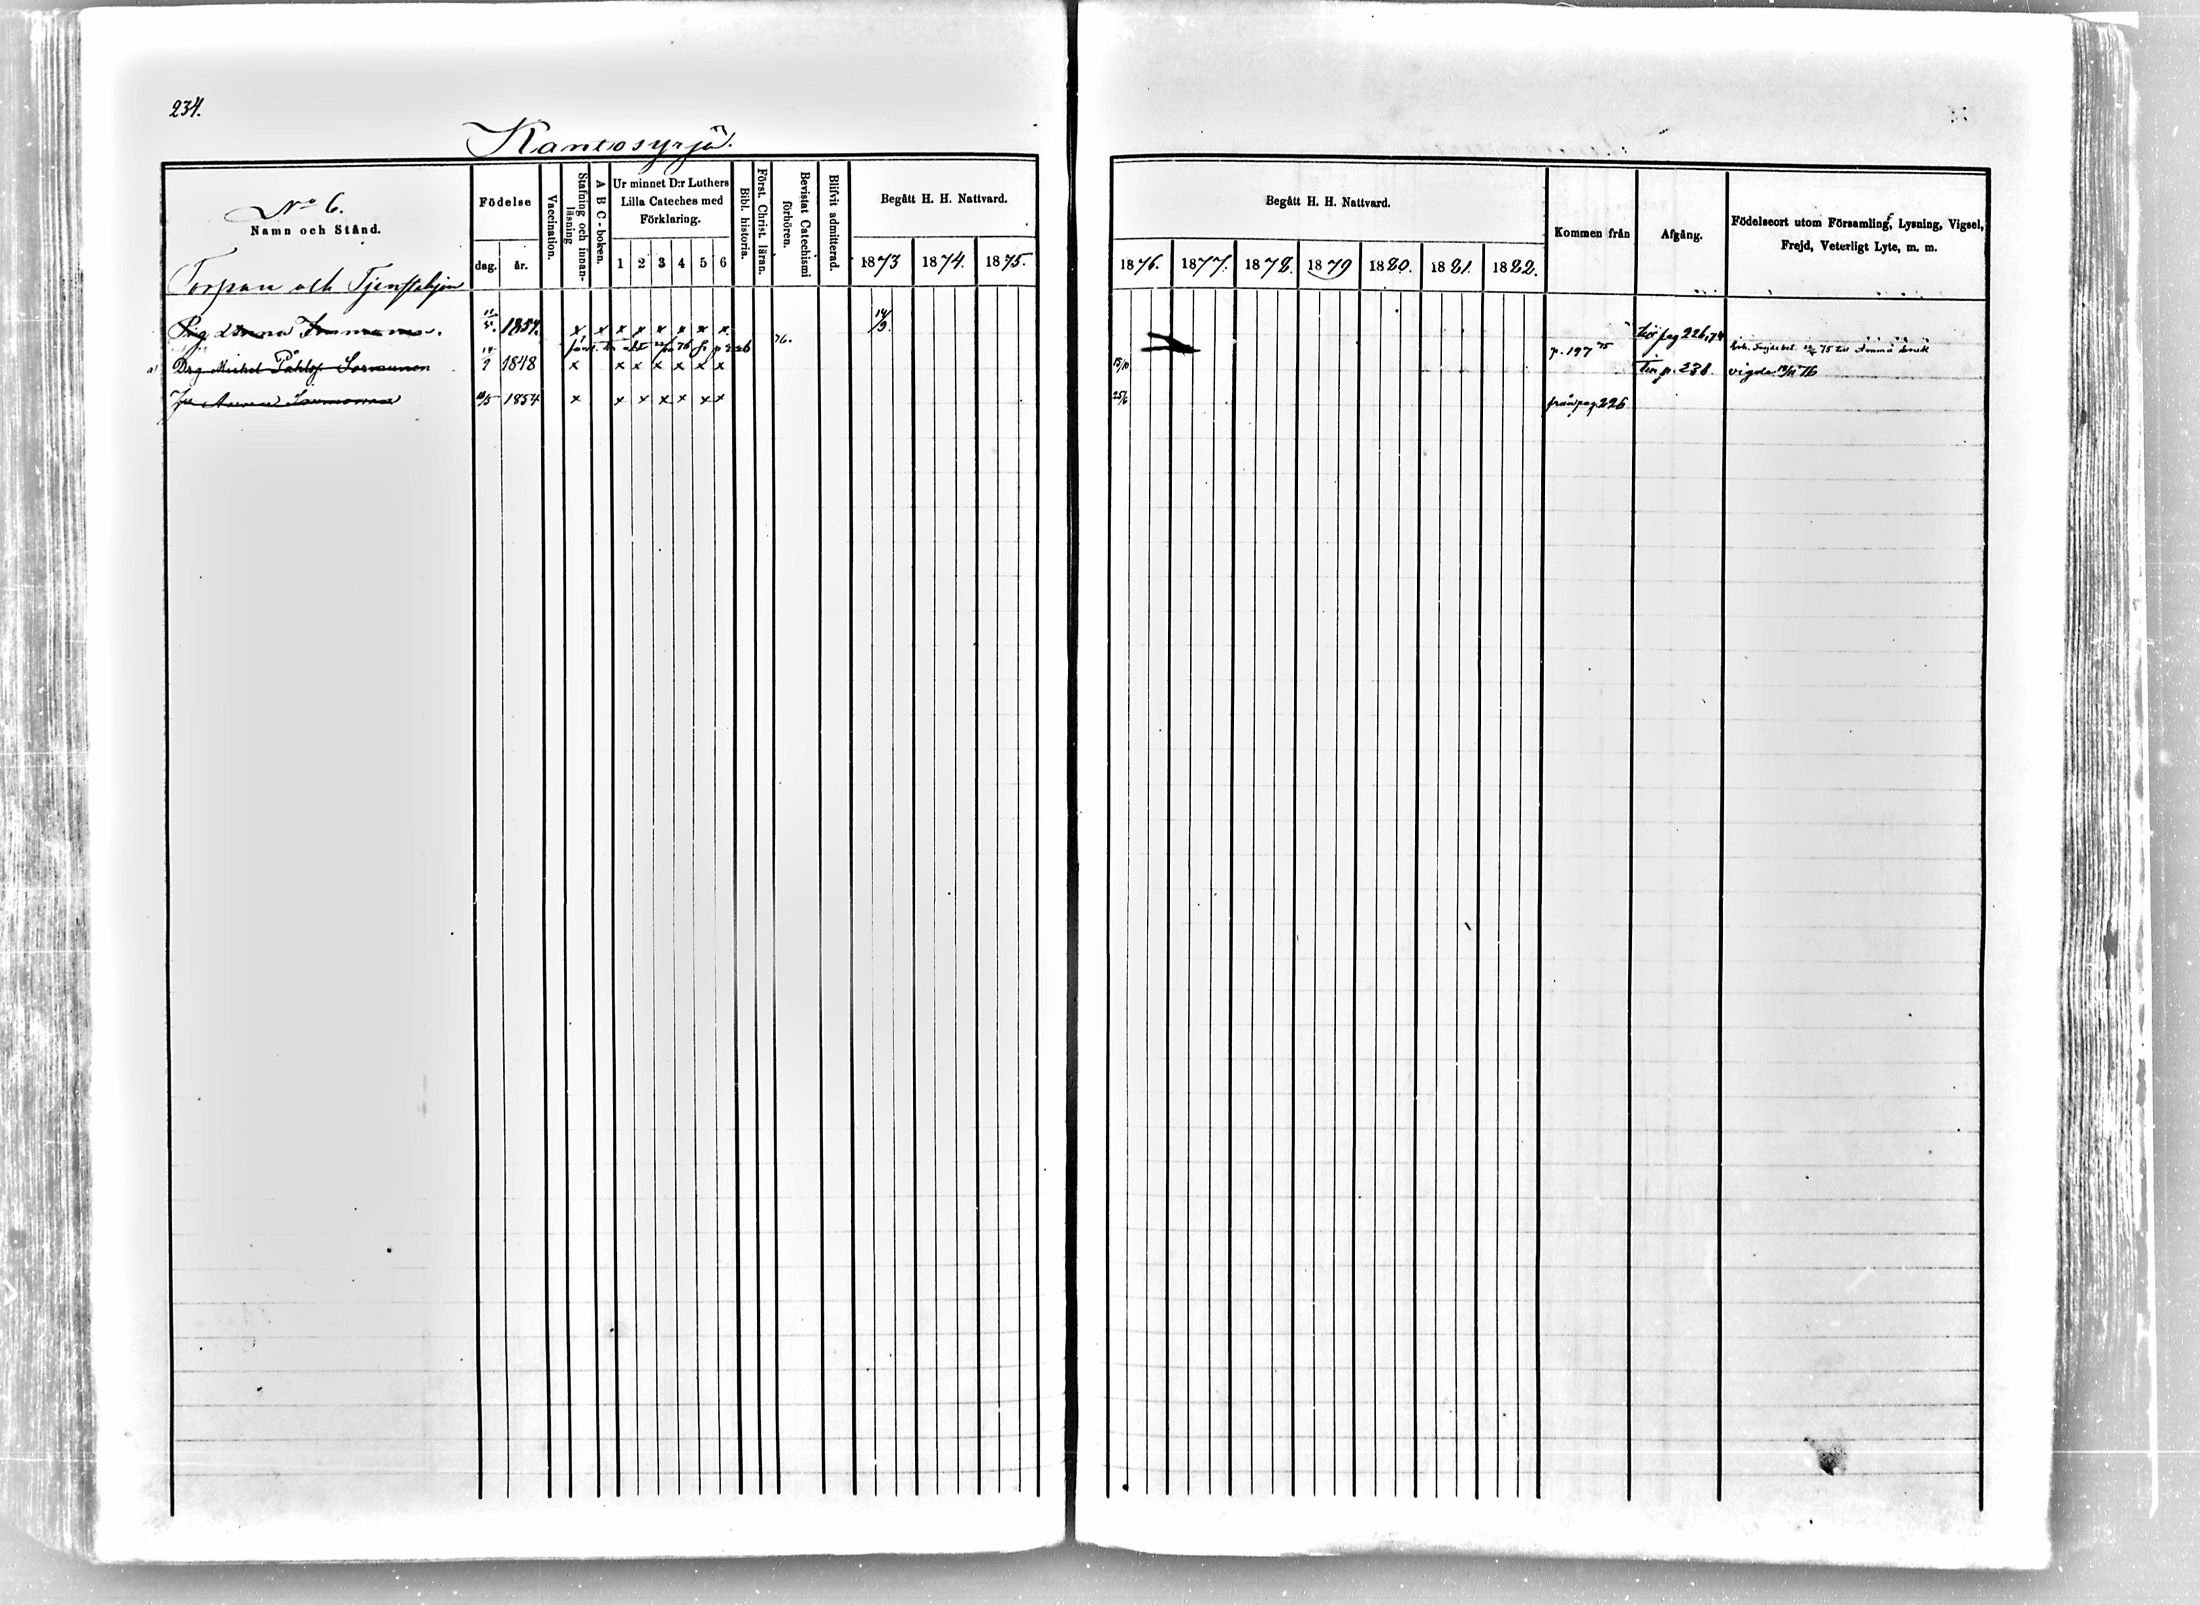 234.
Kantosyrjä.
No 6.
Namn och Stånd.
Födelse
dag. år.
Vaccination.
Stafning och innan-
läsning
A B C-boken.
Ur minnet D:r Luthers
Lilla Cateches med
Förklaring.
1 2 3 4 5 6
Bibl. historia.
Först. Christ. läran.
Bevistat Catechismi
förhören.
Blifvit admitterad.
Begått H. H. Nattvard.
1873 1874. 1875.
Torpare och Tjenstehjon
Pig Anna Sormunen. 1854. x x x x x x x x 14/9.
76.
Drg Michel Påhlsf Sormunen 1848 x x x x x x x
Hu Anna Sormunen 10/5 1854 x x x x x x x
Begått H. H. Nattvard.
1876. 1877. 1878. 1879 1880. 1881. 1882.
Kommen från
Afgång.
Födelseort utom Församling, Lysning, Vigsel,
Frejd, Veterligt Lyte, m. m.
pag 226, 74
p. 197 75
15/10 p. 238. vigde 76
25/6 från pag. 226